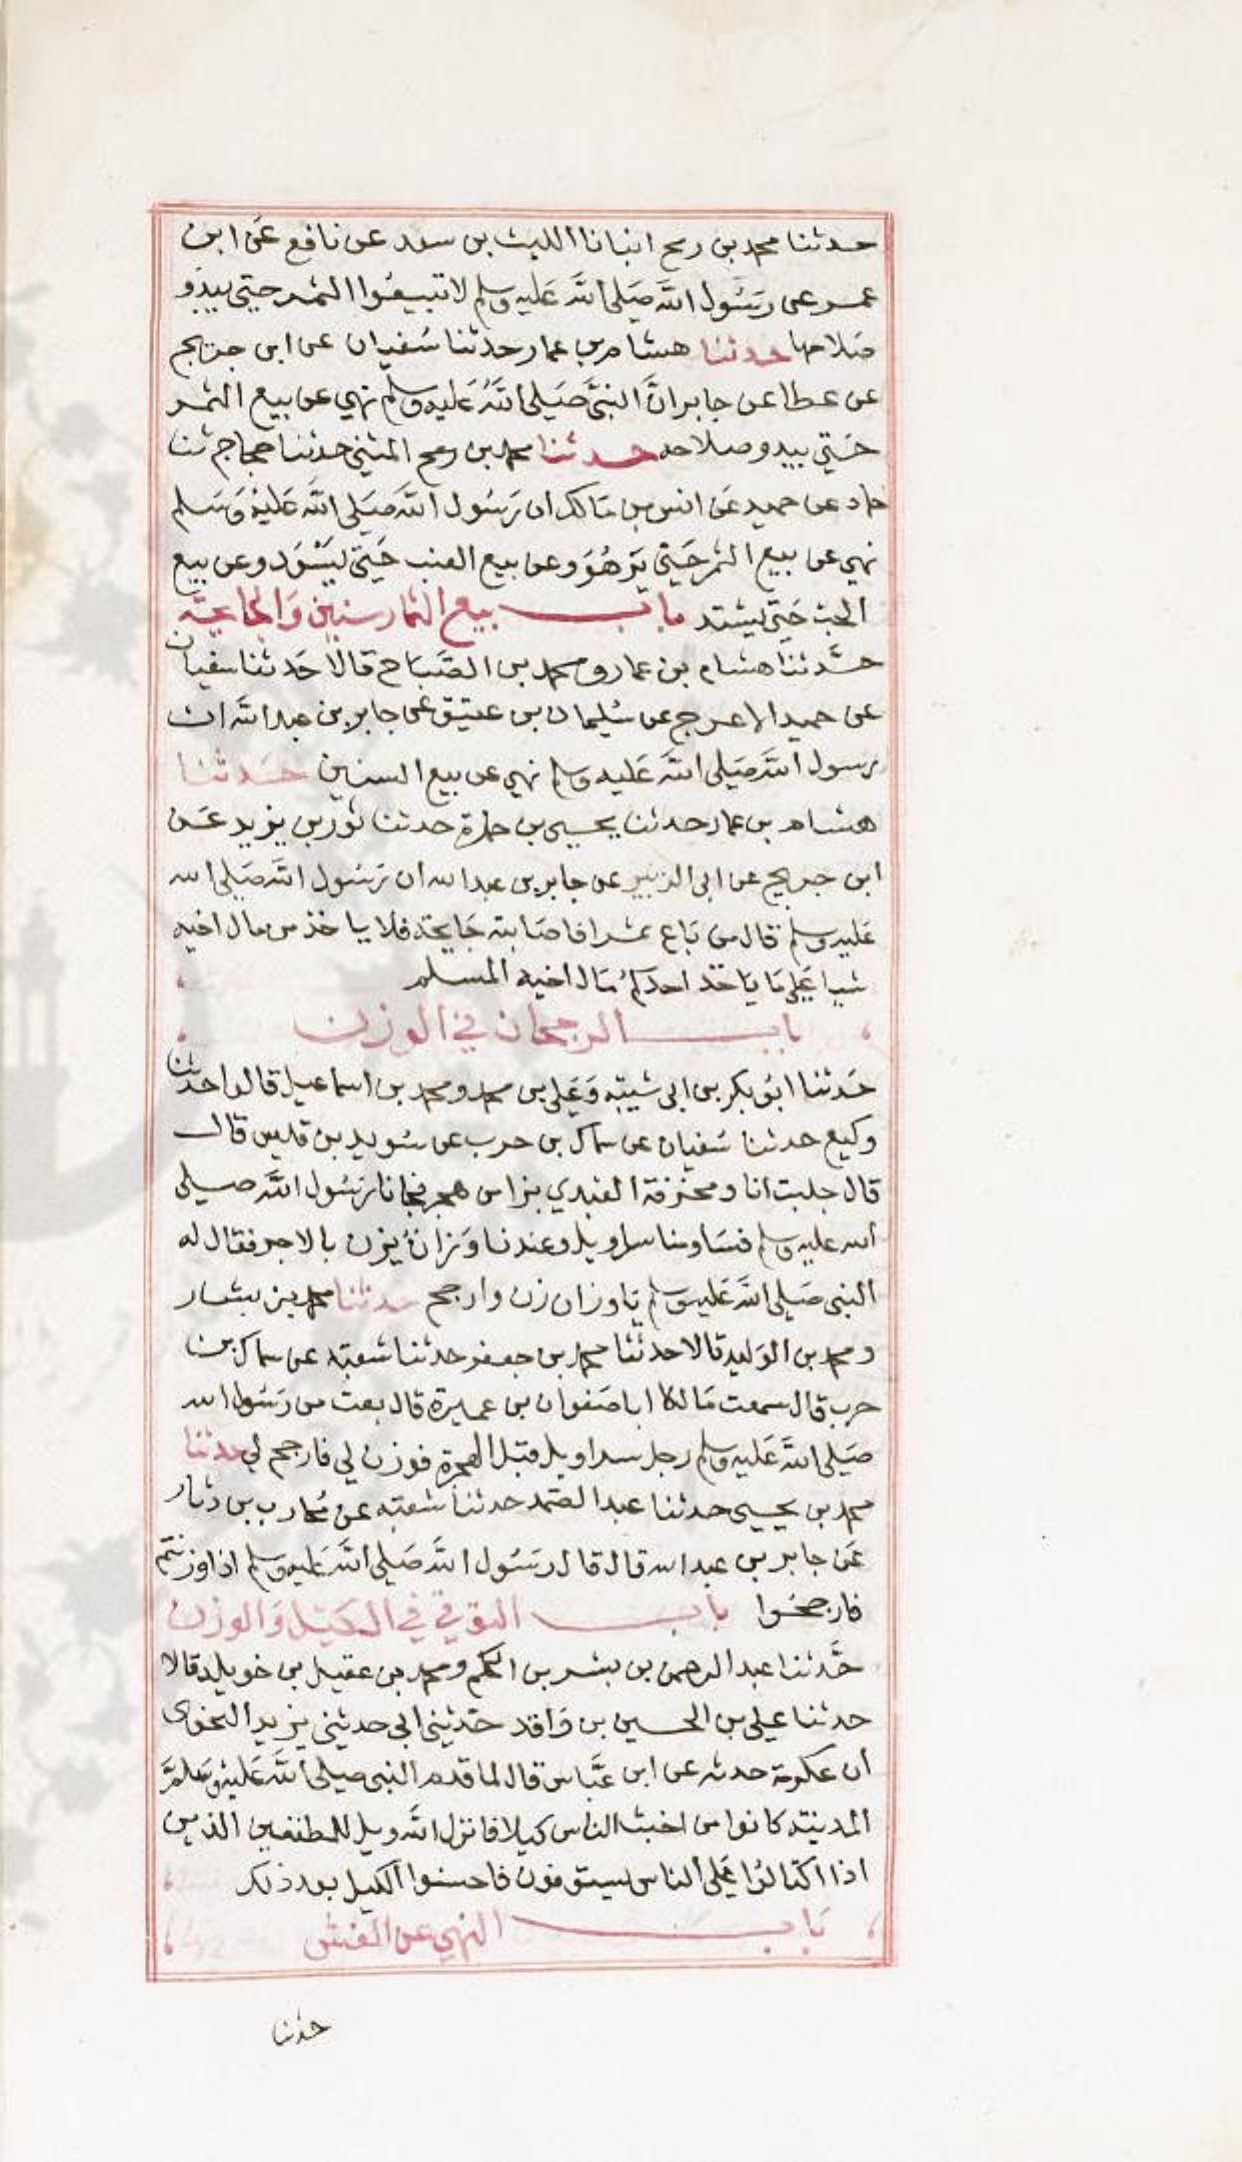 حدثنا محمد بن رمح انبانا الليث بن سعد عن نافع عن ابن
عمر عن رسول الله صلى الله عليه وسلم لا تبيعوا الثمر حتى يبدو
صلاحها حدثنا هشام بن عمار حدثنا سفيان عن ابن جريج
عن عطا عن جابر ان النبي صلى الله عليه وسلم نهي عن بيع الثمر
حتي يبدو صلاحه حدثنا محمد بن رمح المثني حدثنا حجاج ثنا
حماد عن حميد عن انس بن مالك ان رسول الله صلى الله عليه وسلم
نهي عن بيع الثمر حتي يزهو وعن بيع العنب حتي يسود وعن بيع
الحب حتي يشتد باب بيع الثمار سنين والجايحة
حدثنا هشام بن عمار ومحمد بن الصباح قالا حدثنا سفيان
عن حميد الاعرج عن سليمان بن عتيق عن جابر بن عبد الله ان
رسول الله صلى الله عليه وسلم نهي عن بيع السنين حدثنا
هشام بن عمار حدثنا يحيى بن حمزة حدثنا ثور بن يزيد عن
ابن جريج عن ابي الزبير عن جابر بن عبد الله ان رسول الله صلى الله
عليه وسلم قال من باع ثمرا فاصابته جايحة فلا ياخذ من مال اخيه
شيا علي ما ياخذ احدكم مال اخيه المسلم
باب الرجحان في الوزن
حدثنا ابو بكر بن ابي شيبة وعلي بن محمد ومحمد بن اسماعيل قالوا حدثنا
وكيع حدثنا سفيان عن سماك بن حرب عن سويد بن قيس قال
قال جلبت انا ومخرفة العبدي بزا من هجر فجانا رسول الله صلى
الله عليه وسلم فساومنا سراويل وعندنا وزان يزن بالاجر فقال له
النبي صلى الله عليه وسلم يا وزان زن وارجح حدثنا محمد بن بشار
ومحمد بن الوليد قالا حدثنا محمد بن جعفر حدثنا شعبة عن سماك بن
حرب قال سمعت مالكا ابا صفوان بن عميرة قال بعت من رسول الله
صلى الله عليه وسلم رجل سراويل قبل الهجرة فوزن لي فارجح لي حدثنا
محمد بن يحيى حدثنا عبد الصمد حدثنا شعبة عن محارب بن دثار
عن جابر بن عبد الله قال قال رسول الله صلى الله عليه وسلم اذا وزنتم
فارجحوا باب التوقي في الكيل والوزن
حدثنا عبد الرحمن بن بشر بن الحكم ومحمد بن عقيل بن خويلد قالا
حدثنا علي بن الحسين بن واقد حدثني ابي حدثني يزيد النحوى
أن عكرمة حدثه عن ابن عباس قال لما قدم النبي صلى الله عليه وسلم
المدينة كانوا من اخبث الناس كيلا فانزل الله ويل للمطففين الذين
اذا اكتالوا علي الناس يستوفون فاحسنوا الكيل بعد ذلك
باب النهي عن الغش
حدثنا